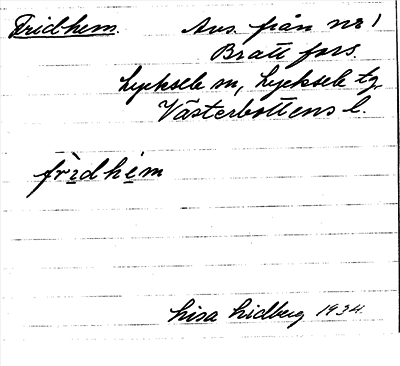 Fridhem. Avs. från nr 1
Brattfors.
Lycksele sn, Lycksele tg
Västerbottens l.
frìdhém
Lisa Lidberg 1934.